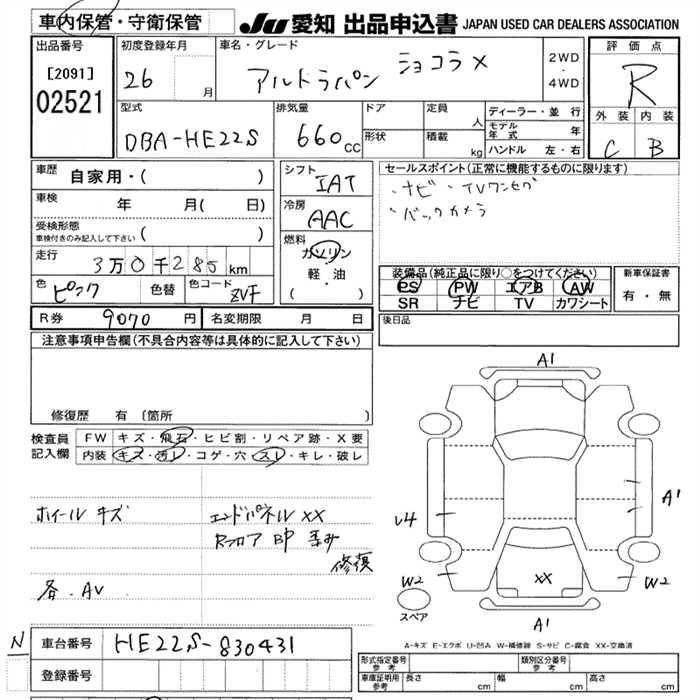 車内保管・守衛保管
JU 愛知 出品申込書 JAPAN USED CAR DEALERS ASSOCIATION
出品番号
[2091]
02521
初度登録年月
26 月
車名・グレード
アルトラパン ショコラX
2WD
・
4WD
評価点
R
外装 内装
C B
型式
DBA-HE22S
排気量
660 cc
ドア
形状
定員 人
積載 kg
ディーラー・並行
モデル年式 年
ハンドル 左・右
車歴
自家用・( )
車検 年 月( 日)
受検形態
車検付きのみ記入して下さい ( )
走行
3万0千285 km
色 ピンク 色替 色コード ZVF
シフト
IAT
冷房
AAC
燃料
ガソリン
軽・油
( ・ )
セールスポイント(正常に機能するものに限ります)
・ナビ・TVワンセグ
・バックカメラ
装備品(純正品に限り○をつけてください)
PS PW エアB AW
SR ナビ TV カワシート
新車保証書
有・無
R券 9070 円 名変期限 月 日
後日品
注意事項申告欄(不具合内容等は具体的に記入して下さい)
修復歴 有 〔箇所
検査員
記入欄
FW キズ・飛石・ヒビ割・リペア跡・X要
内装 キズ・汚レ・コゲ・穴・スレ・キレ・破レ
ホイール キズ
エンドパネル XX
Rフロア BP 歪み
修復
各.AV
A1
A1
U4
W2
XX
W2
スペア
A1
A-キズ E-エクボ U-凹み W-補修跡 S-サビ C-腐食 XX-交換済
N 車台番号 HE22S-830431
登録番号
形式指定番号
参考
類別区分番号
参考
車庫証明用
参考
長さ cm 幅 cm 高さ cm